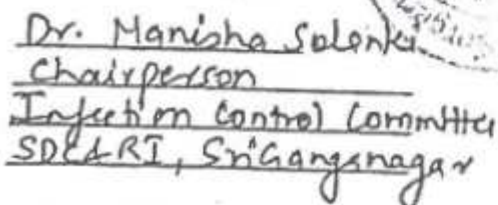 Dr. Manisha Solanki
Chairperson
Infection Control Committee
SDC&RI, SriGanganagar